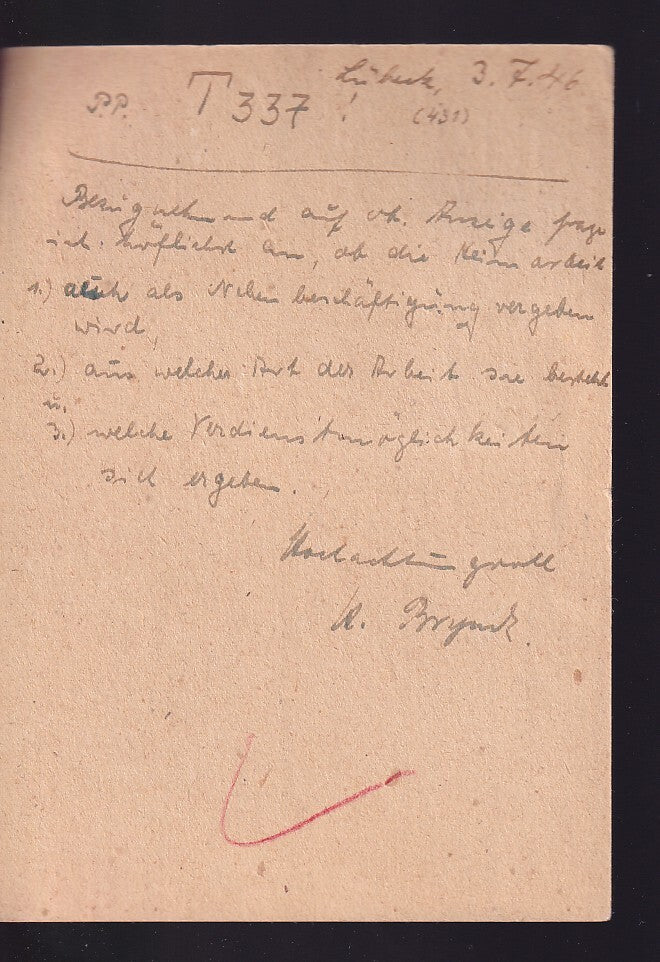 Lübeck, 3.7.46
P.P. T 337 ! (431)
Bezugnehmend auf ob. Anzeige frage
ich höflichst an, ob die Heimarbeit
1.) auch als Nebenbeschäftigung vergeben
wird,
2.) aus welcher Art der Arbeit sie besteht
u.
3.) welche Verdienstmöglichkeiten
sich ergeben.
Hochachtungsvoll